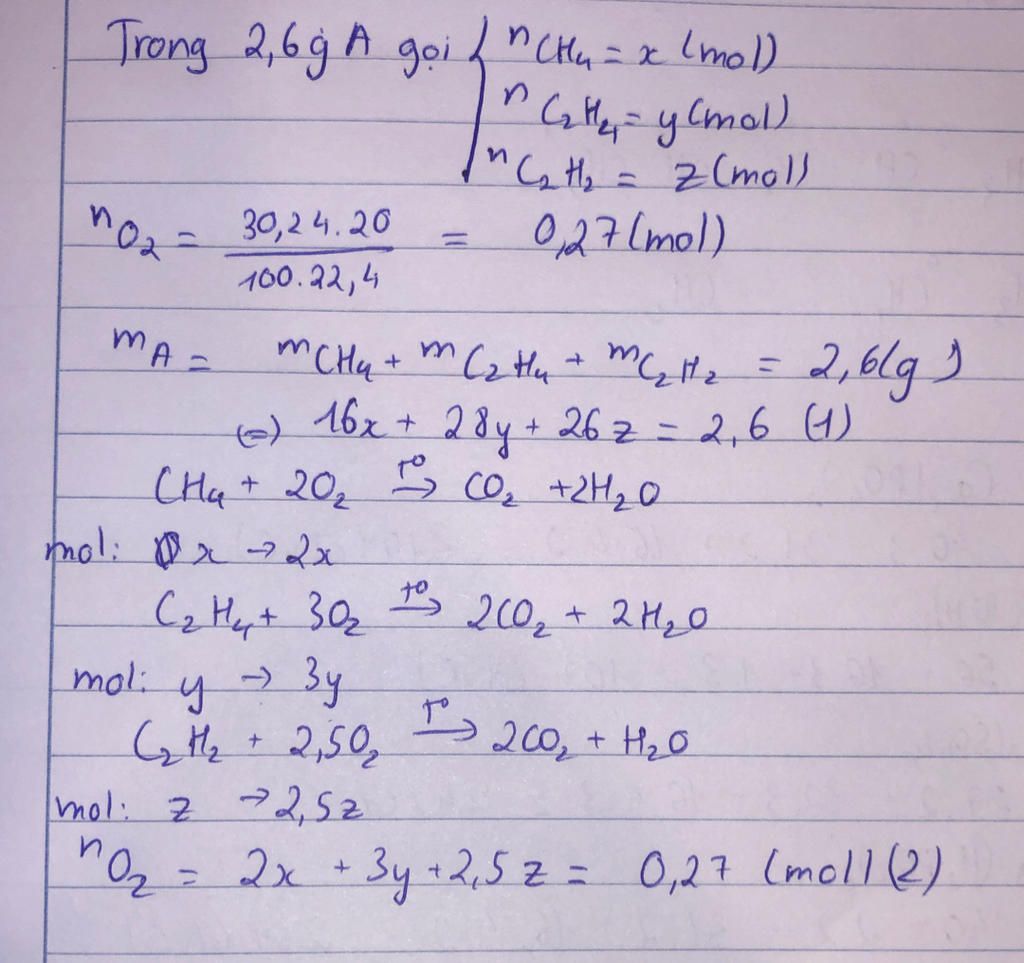 Trong 2,6g A gọi { nCH4 = x (mol)
nC2H4 = y (mol)
nC2H2 = z (mol)
nO2 = 30,24.20 / 100.22,4 = 0,27 (mol)
mA = mCH4 + mC2H4 + mC2H2 = 2,6(g)
(=) 16x + 28y + 26z = 2,6 (1)
CH4 + 2O2 t° → CO2 + 2H2O
mol: x → 2x
C2H4 + 3O2 t° → 2CO2 + 2H2O
mol: y → 3y
C2H2 + 2,5O2 t° → 2CO2 + H2O
mol: z → 2,5z
nO2 = 2x + 3y + 2,5z = 0,27 (mol) (2)